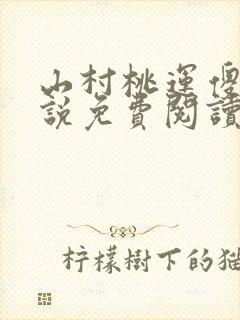 山村桃運傻
說免費閱讀
柠檬樹下的猫